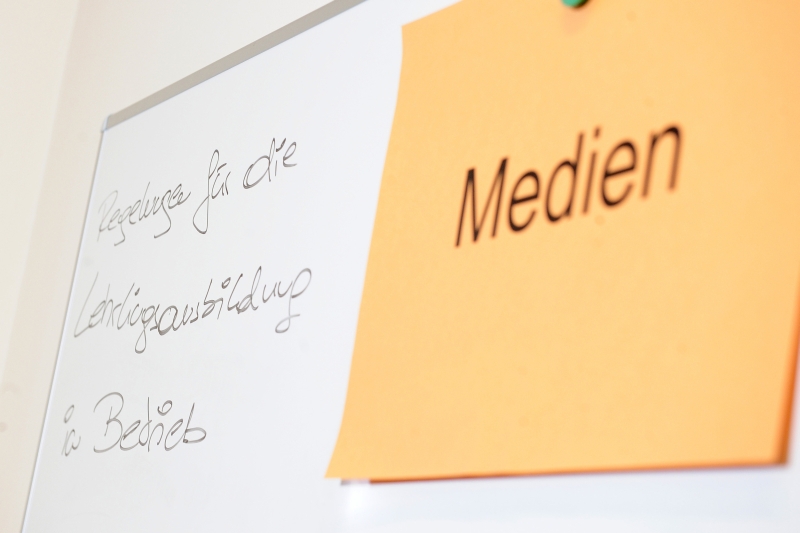 Regelungen für die
Lehrlingsausbildung
in Betrieb
Medien